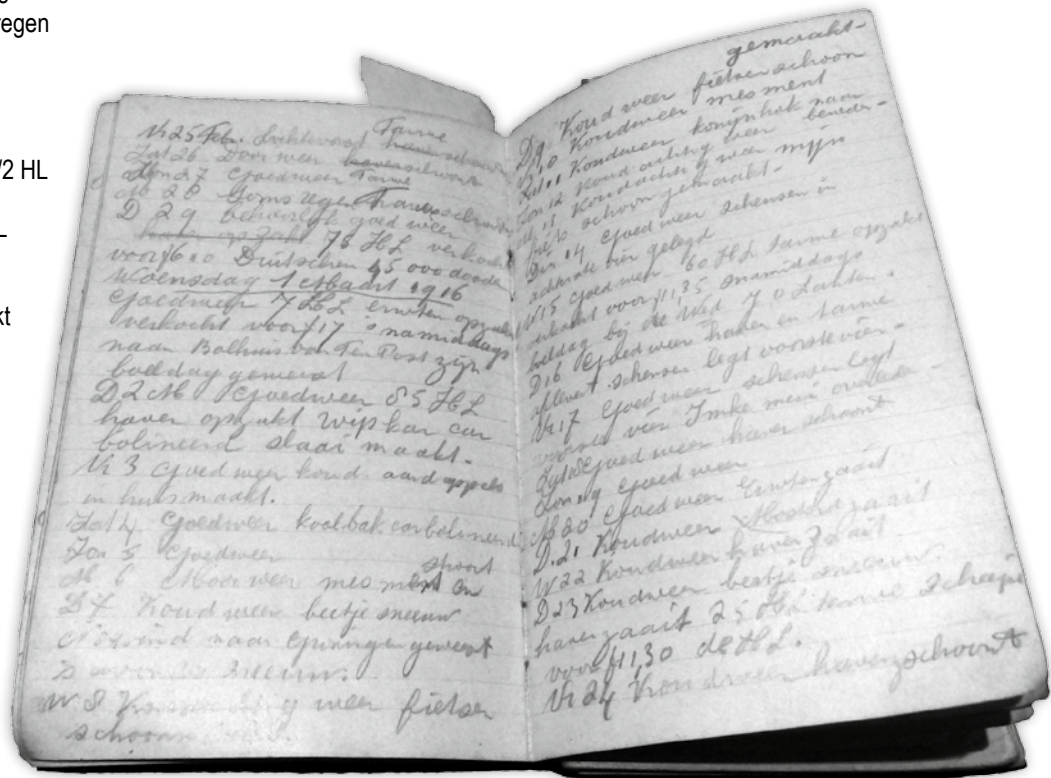 regen
/2 HL
kt
Vr 25 Feb. Tarwe
Zat 26 Dooi weer
Zon 27 Goedweer Tarwe
M 28 Soms regen
D 29 behoorlijk goed weer
78 HL verkocht
voor Duitschen 45000 dooden
Woensdag 1 Maart 1916
Goedweer 7 HL erwten opzakt
verkocht voor f17 's namiddags
naar Bolhuis van Ten Post zijn
boeldag geweest
D 2 M Goedweer 85 HL
haver opzakt wipkar car
bolineerd slaai maakt.
Vr 3 Goed weer koud. aardappels
in huis maakt.
Zat 4 Goedweer koolbak carbolineerd
Zon 5 Goedweer
M 6 Mooi weer mesment en
D 7 Koud weer beetje sneeuw
naar geweest
's sneeuw.
W 8 weer fietsen
schoon
gemaakt-
D 9. Koud weer fietsen schoon
V 10 Koudweer mesment
Zat 11 Koudweer konijnhok naar
Zon 12 Koud achtig weer
M 13 Koudachtig weer mijn
fiets schoon gemaakt-
Din 14 Goed weer schensen in
achterste vier gelegd
W 15 Goed weer 60 HL tarwe opzakt
verkocht voor f11,35 snamiddags
boeldag bij de Wed
D 16 Goed weer haver en tarwe
aflevert schensen legt voorste vier-
Vr 17 Goed weer schensen legt
voorste vier Imke meui overleden-
Zat 18 Goed weer haver schoont
Zon 19 Goed weer
M 20 Goed weer Erwten zaait
D. 21 Koudweer Mosterd zaait
W 22 Koudweer haver zaait
D 23 Koudweer beetje sneeuw.
haver zaait 25 HL tarwe
voor f11,30 de HL.
Vr 24 Koudweer haver schoont